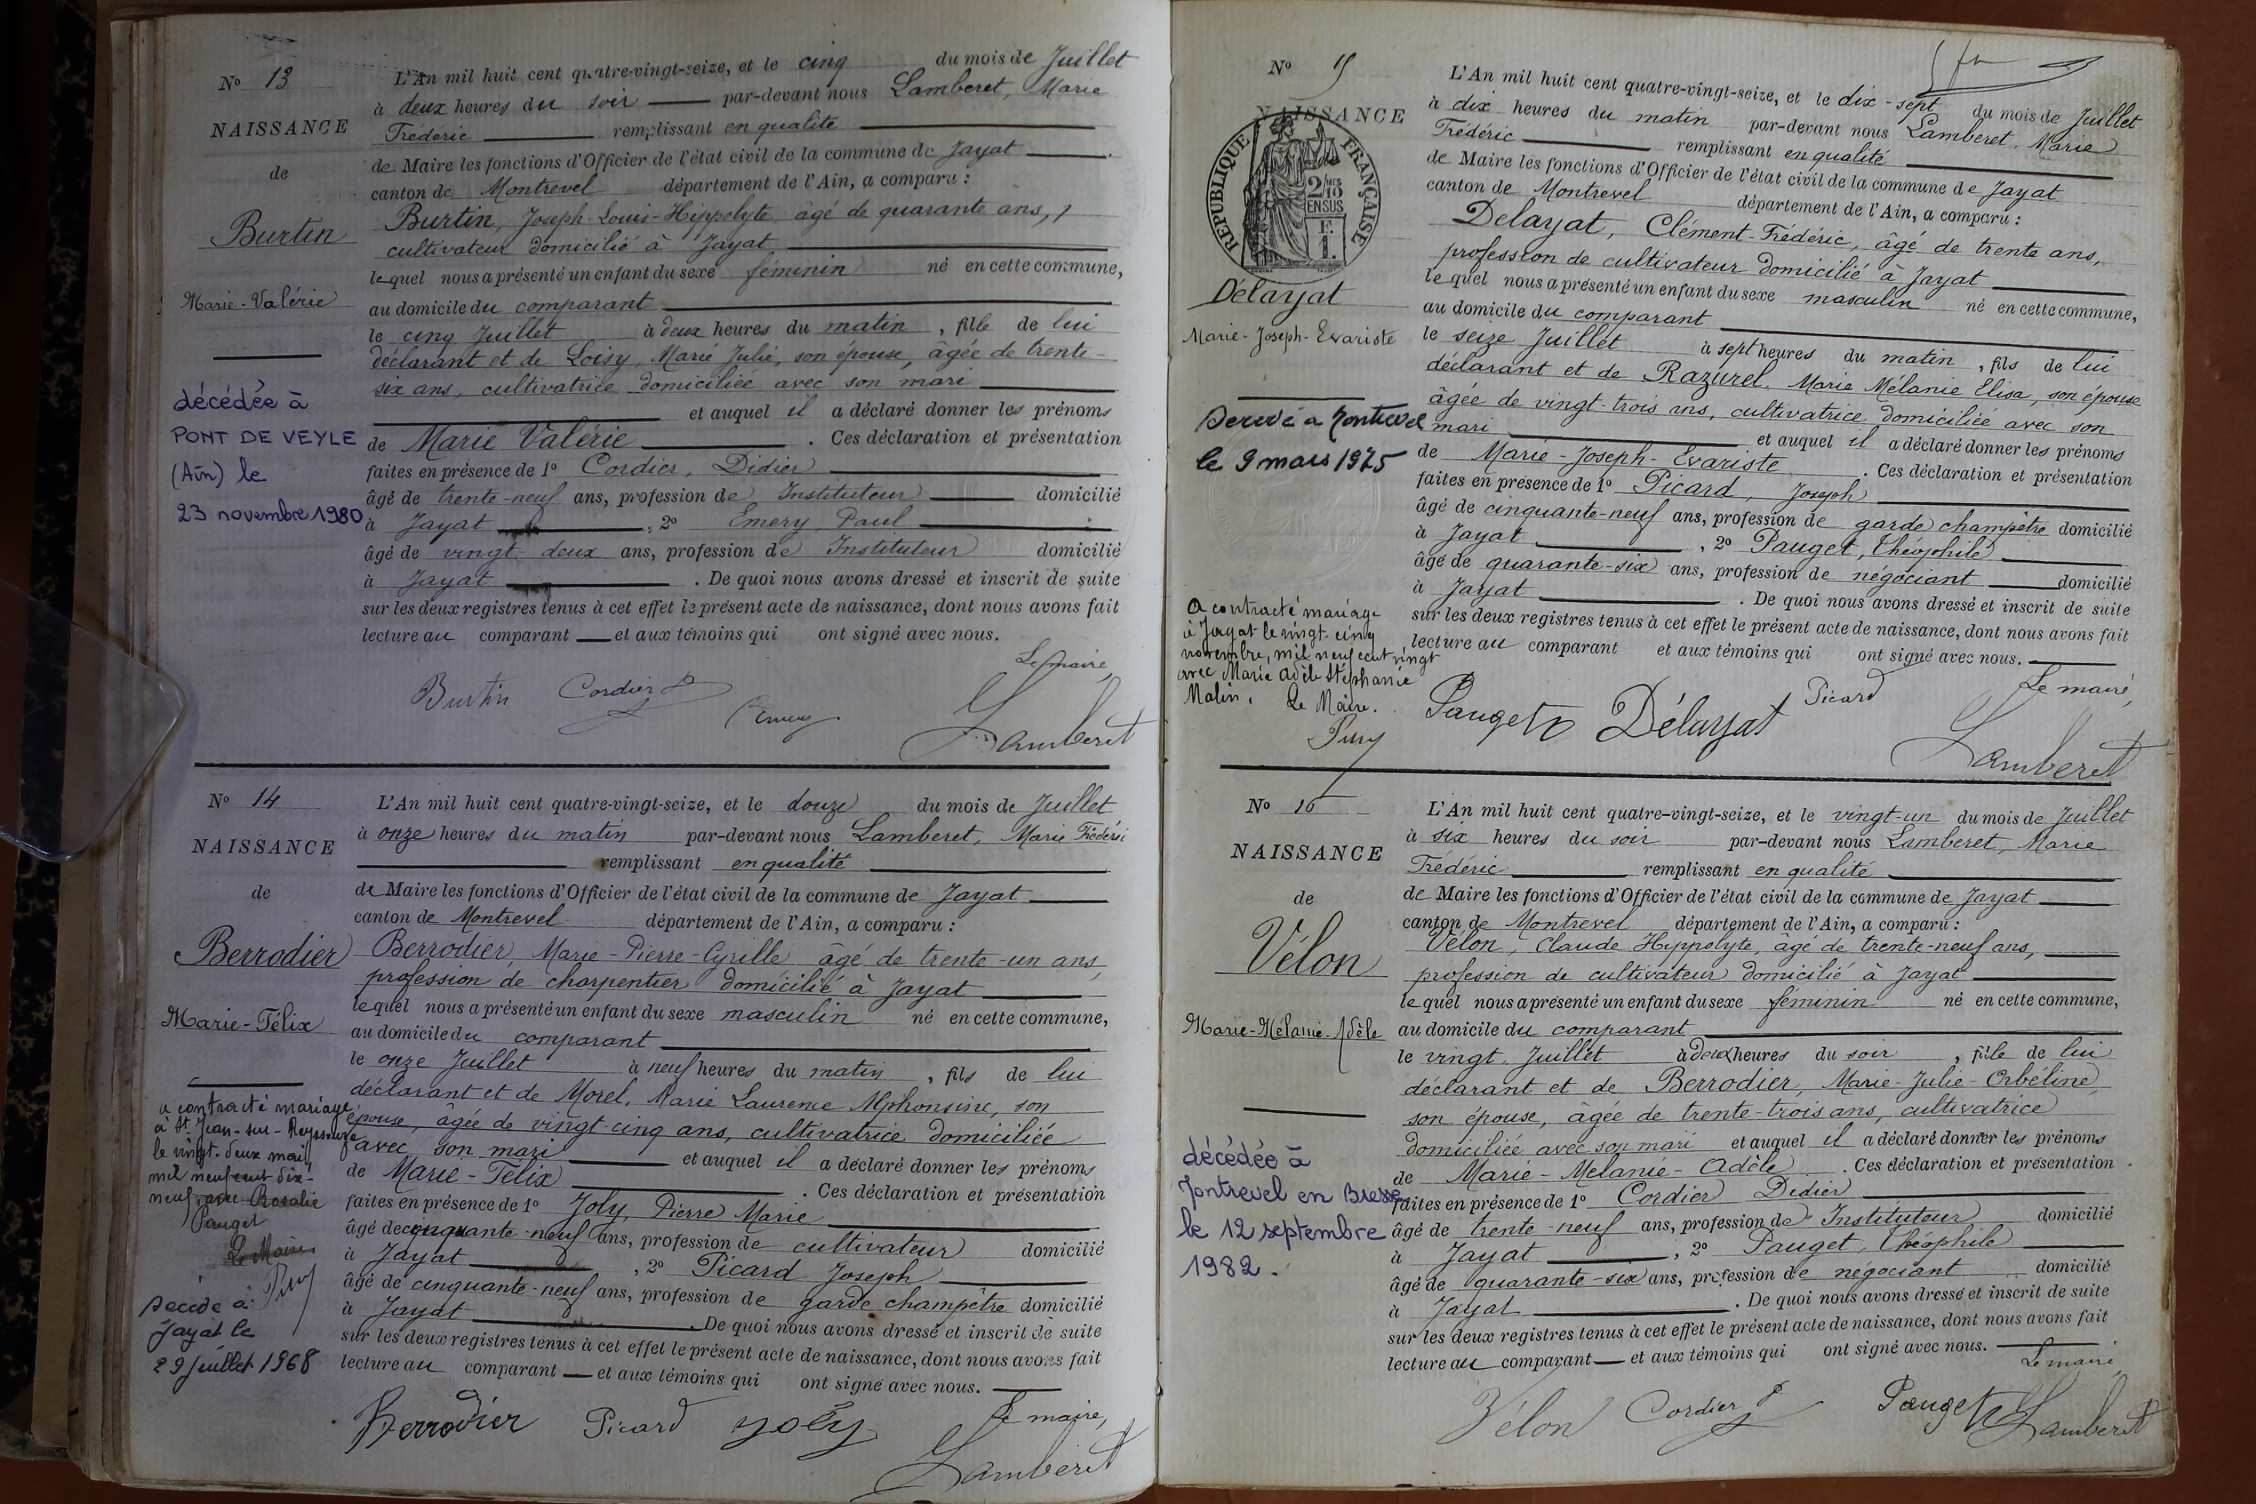 N° 13
NAISSANCE
de
Burtin
Marie-Valérie
décédée à
PONT DE VEYLE
(Ain) le
23 novembre 1980
L'An mil huit cent quatre-vingt-seize, et le cinq du mois de Juillet
à deux heures du soir par-devant nous Lamberet, Marie
Frédéric remplissant en qualité
de Maire les fonctions d'Officier de l'état civil de la commune de Jayat
canton de Montrevel département de l'Ain, a comparu :
Burtin, Joseph-Louis-Hippolyte âgé de quarante ans,
cultivateur domicilié à Jayat
lequel nous a présenté un enfant du sexe féminin né en cette commune,
au domicile du comparant
le cinq Juillet à deux heures du matin, fille de lui
déclarant et de Loisy, Marie Julie, son épouse, âgée de trente-
six ans, cultivatrice domiciliée avec son mari
et auquel il a déclaré donner les prénoms
de Marie Valérie . Ces déclaration et présentation
faites en présence de 1° Cordier, Didier
âgé de trente-neuf ans, profession de Instituteur domicilié
à Jayat , 2° Emery Paul
âgé de vingt-deux ans, profession de Instituteur domicilié
à Jayat . De quoi nous avons dressé et inscrit de suite
sur les deux registres tenus à cet effet le présent acte de naissance, dont nous avons fait
lecture au comparant et aux témoins qui ont signé avec nous.
Le maire,
Burtin Cordier Emery
Lamberet
N° 14
NAISSANCE
de
Berrodier
Marie-Félix
a contracté mariage
à St Jean-sur-Reyssouze
le vingt-deux mai
mil neuf cent dix-
neuf avec Rosalie
Pauget
Le Maire
Décédé à
Jayat le
29 juillet 1968
L'An mil huit cent quatre-vingt-seize, et le douze du mois de Juillet
à onze heures du matin par-devant nous Lamberet, Marie Frédéric
remplissant en qualité
de Maire les fonctions d'Officier de l'état civil de la commune de Jayat
canton de Montrevel département de l'Ain, a comparu :
Berrodier, Marie-Pierre-Cyrille âgé de trente-un ans,
profession de charpentier domicilié à Jayat
lequel nous a présenté un enfant du sexe masculin né en cette commune,
au domicile du comparant
le onze Juillet à neuf heures du matin, fils de lui
déclarant et de Morel, Marie Laurence Alphonsine, son
épouse, âgée de vingt-cinq ans, cultivatrice domiciliée
avec son mari et auquel il a déclaré donner les prénoms
de Marie-Félix . Ces déclaration et présentation
faites en présence de 1° Joly, Pierre Marie
âgé de cinquante-neuf ans, profession de cultivateur domicilié
à Jayat , 2° Picard Joseph
âgé de cinquante-neuf ans, profession de garde champêtre domicilié
à Jayat . De quoi nous avons dressé et inscrit de suite
sur les deux registres tenus à cet effet le présent acte de naissance, dont nous avons fait
lecture au comparant et aux témoins qui ont signé avec nous.
Le maire,
Berrodier Picard Joly
Lamberet
N° 15
NAISSANCE
RÉPUBLIQUE FRANÇAISE
2/10 MES
EN SUS
F.
1.
Délayat
Marie-Joseph-Evariste
Décédé à Montrevel
le 9 mars 1975
A contracté mariage
à Jayat le vingt-cinq
novembre, mil neuf cent vingt
avec Marie Adèle Stéphanie
Matin.
Le Maire.
L'An mil huit cent quatre-vingt-seize, et le dix-sept du mois de Juillet
à dix heures du matin par-devant nous Lamberet, Marie
Frédéric remplissant en qualité
de Maire les fonctions d'Officier de l'état civil de la commune de Jayat
canton de Montrevel département de l'Ain, a comparu :
Delayat, Clément-Frédéric, âgé de trente ans,
profession de cultivateur domicilié à Jayat
lequel nous a présenté un enfant du sexe masculin né en cette commune,
au domicile du comparant
le seize Juillet à sept heures du matin, fils de lui
déclarant et de Razurel, Marie Mélanie Elisa, son épouse
âgée de vingt-trois ans, cultivatrice domiciliée avec son
mari et auquel il a déclaré donner les prénoms
de Marie-Joseph-Evariste . Ces déclaration et présentation
faites en présence de 1° Picard, Joseph
âgé de cinquante-neuf ans, profession de garde champêtre domicilié
à Jayat , 2° Pauget, Théophile
âgé de quarante-six ans, profession de négociant domicilié
à Jayat . De quoi nous avons dressé et inscrit de suite
sur les deux registres tenus à cet effet le présent acte de naissance, dont nous avons fait
lecture au comparant et aux témoins qui ont signé avec nous.
Le maire,
Pauget Délayat Picard
Lamberet
N° 16
NAISSANCE
de
Vélon
Marie-Mélanie-Adèle
décédée à
Montrevel en Bresse
le 12 septembre
1982.
L'An mil huit cent quatre-vingt-seize, et le vingt-un du mois de Juillet
à six heures du soir par-devant nous Lamberet, Marie
Frédéric remplissant en qualité
de Maire les fonctions d'Officier de l'état civil de la commune de Jayat
canton de Montrevel département de l'Ain, a comparu :
Vélon, Claude Hippolyte, âgé de trente-neuf ans,
profession de cultivateur domicilié à Jayat
lequel nous a présenté un enfant du sexe féminin né en cette commune,
au domicile du comparant
le vingt Juillet à deux heures du soir, fille de lui
déclarant et de Berrodier, Marie-Julie-Orbéline
son épouse, âgée de trente-trois ans, cultivatrice
domiciliée avec son mari et auquel il a déclaré donner les prénoms
de Marie-Mélanie-Adèle . Ces déclaration et présentation
faites en présence de 1° Cordier Didier
âgé de trente-neuf ans, profession de Instituteur domicilié
à Jayat , 2° Pauget, Théophile
âgé de quarante-six ans, profession de négociant domicilié
à Jayat . De quoi nous avons dressé et inscrit de suite
sur les deux registres tenus à cet effet le présent acte de naissance, dont nous avons fait
lecture au comparant et aux témoins qui ont signé avec nous.
Le maire,
Vélon Cordier Pauget Lamberet